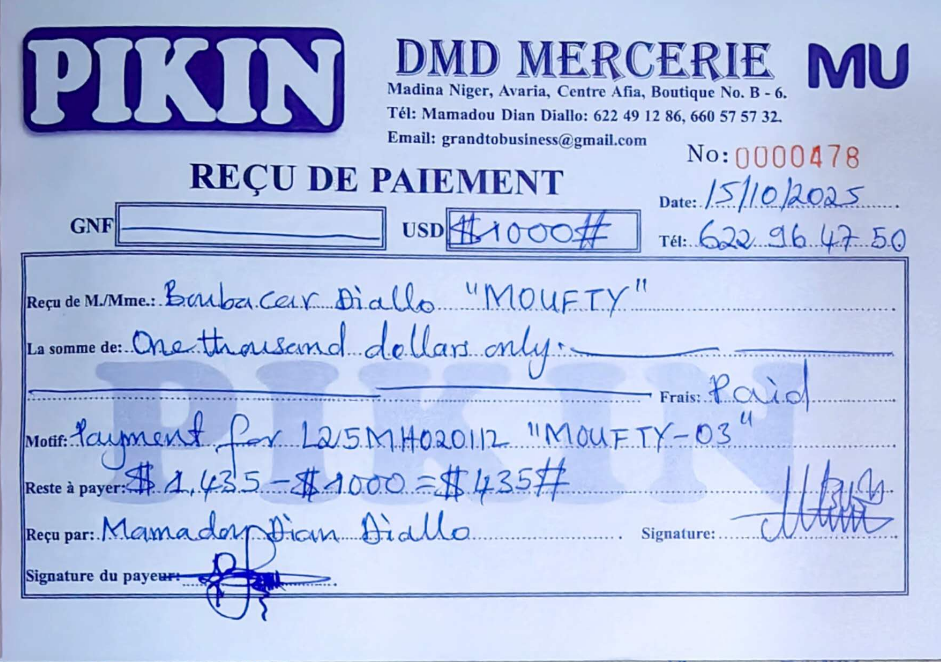 PIKIN
DMD MERCERIE
MU
Madina Niger, Avaria, Centre Afia, Boutique No. B - 6.
Tél: Mamadou Dian Diallo: 622 49 12 86, 660 57 57 32.
Email: grandtobusiness@gmail.com
No: 0000478
REÇU DE PAIEMENT
Date: 15/10/2025
GNF
USD $1000#
Tél: 622 96 47 50
Reçu de M./Mme.: Boubacar Diallo "MOUFTY"
La somme de: One thousand dollars only.
Frais: Paid
Motif: Payment for L25MH020112 "MOUFTY-03"
Reste à payer: $ 1,435 - $1000 = $435#
Reçu par: Mamadou Dian Diallo
Signature:
Signature du payeur:
PIKIN